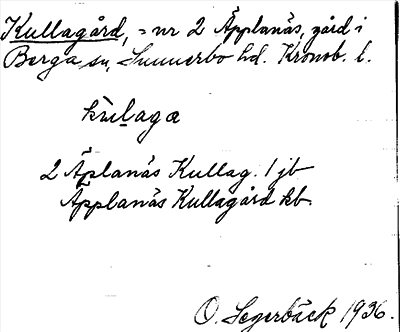 Kullagård, = nr 2 Äpplanäs, gård i
Berga sn, Sunnerbo hd. Kronob. l.
kùlaga
2 Äplanäs Kullag. 1 jb
Äpplanäs Kullagård kb.
O. Segerbäck 1936.